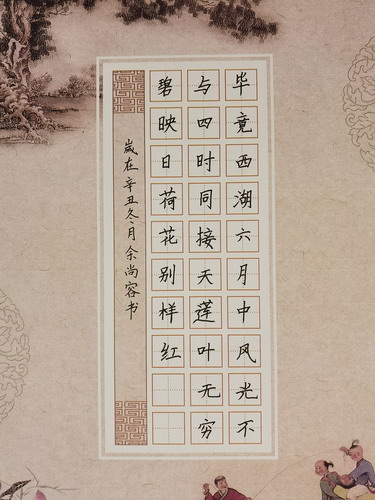 毕竟西湖六月中风光不
与四时同接天莲叶无穷
碧映日荷花别样红
岁在辛丑冬月余尚容书